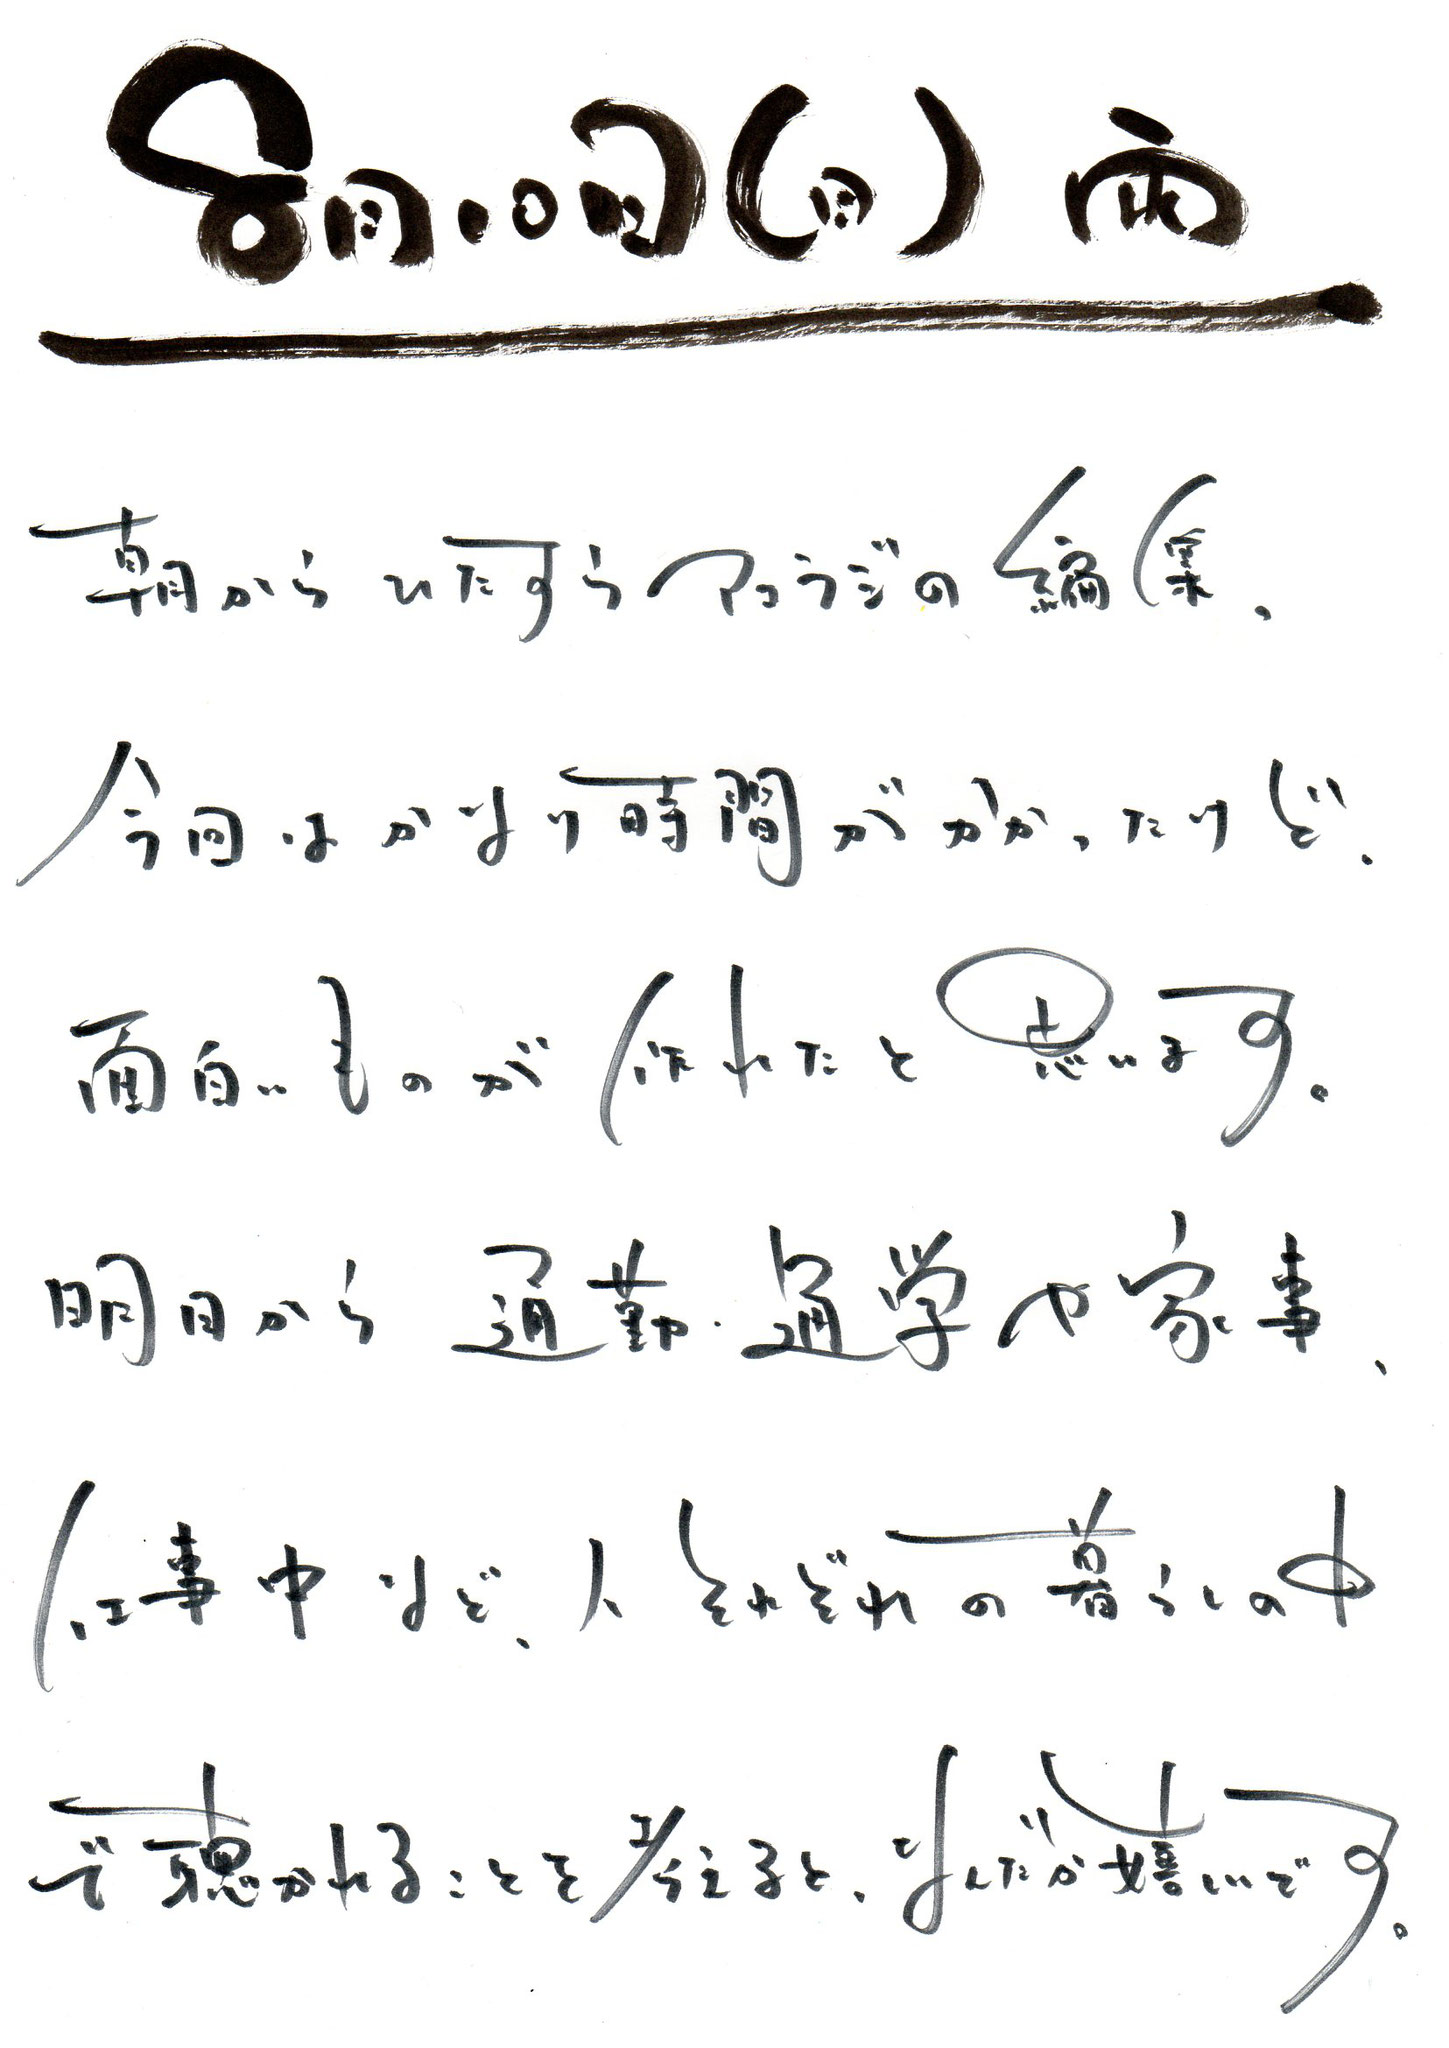 8月10日(日) 雨
朝からひたすらマコラジの編集、
今回はかなり時間がかかったけど、
面白いものが作れたと思います。
明日から通勤・通学や家事、
仕事中など、人それぞれの暮らしの中
で聴かれることを考えると、なんだか嬉しいです。